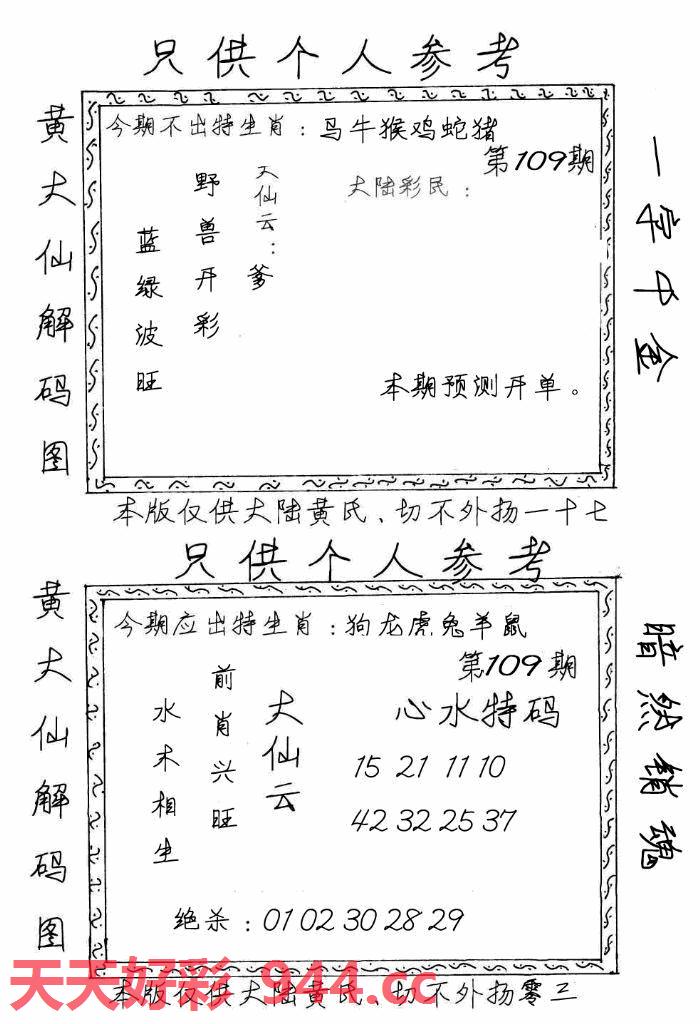 只供个人参考
黄大仙解码图
今期不出特生肖：马牛猴鸡蛇猪
第109期
大仙云：爹
野兽开彩
蓝绿波旺
大陆彩民：
本期预测开单。
一字千金
本版仅供大陆黄氏、切不外扬一十七
只供个人参考
黄大仙解码图
今期应出特生肖：狗龙虎兔羊鼠
第109期
大仙云
前肖兴旺
水木相生
心水特码
15 21 11 10
42 32 25 37
绝杀：01 02 30 28 29
暗然销魂
天天好彩 944.cc
本版仅供大陆黄氏、切不外扬零三